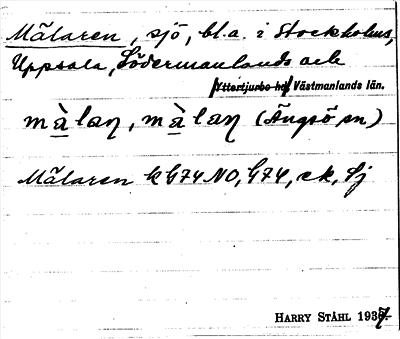 Mälaren, sjö, bl.a. i Stockholms,
Uppsala, Södermanlands och
Yttertjurbo hd Västmanlands län.
mä̀lan, mä̀lan (Ängsö sn)
Mälaren k G74 NO, G74, ek, Sj
HARRY STÅHL 1937.